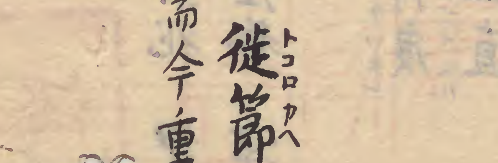 徙節
トコロカヘ
而今重